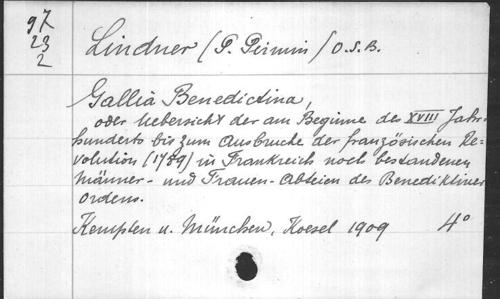 97
23
2
Lindner (P. Pirmin) O.S.B.
Gallia Benedictina,
oder Uebersicht der am Beginne des XVIII Jahr-
hunderts bis zum Ausbruche der französischen Re-
volution (1789) in Frankreich noch bestandenen
Männer- und Frauen-Abteien des Benediktiner
ordens.
Kempten u. München, Koesel 1909 4°